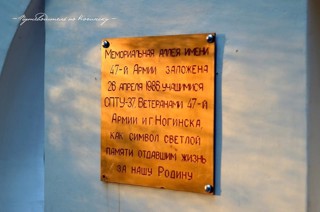 Путешествие по Ногинску
Мемориальная аллея имени
47-й Армии заложена
26 апреля 1986 учащимися
СПТУ-37, ветеранами 47-й
Армии и г Ногинска
как символ светлой
памяти отдавшим жизнь
за нашу Родину